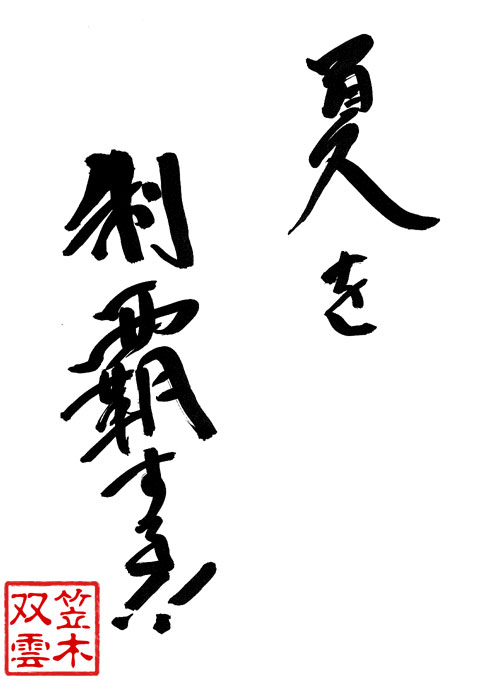 夏を
制覇する!!
笠木
双雲